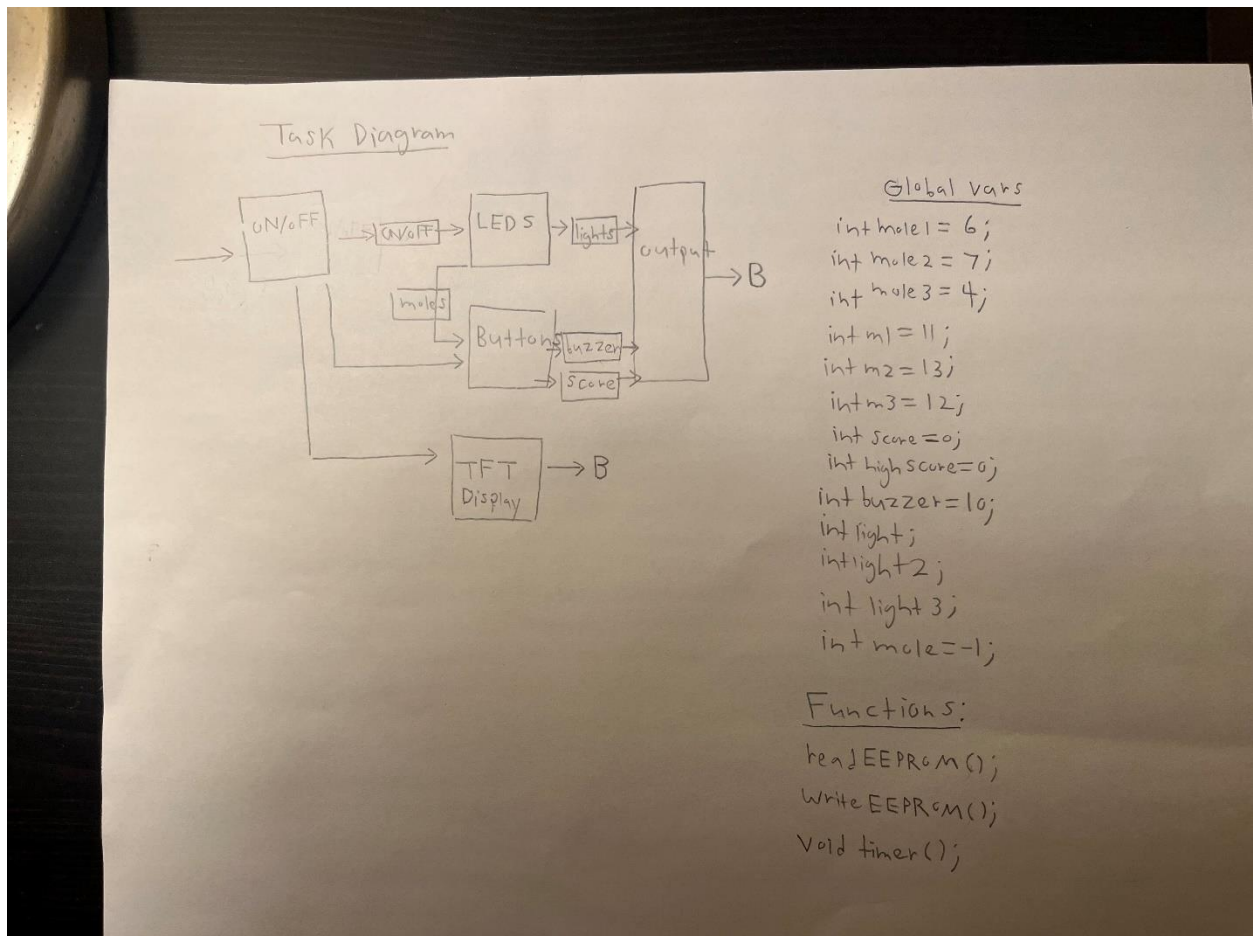 Task Diagram
ON/OFF
ON/OFF
LEDS
lights
output
B
moles
Buttons
buzzer
score
TFT
Display
B
Global vars
int mole1 = 6;
int mole2 = 7;
int mole3 = 4;
int m1 = 11;
int m2 = 13;
int m3 = 12;
int score = 0;
int high score = 0;
int buzzer = 10;
int light;
int light2;
int light 3;
int mole = -1;
Functions:
read EEPROM();
Write EEPROM();
Void timer();